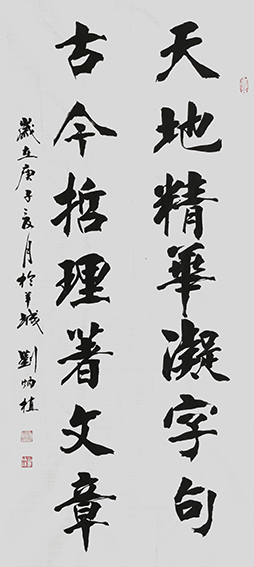 天地精華凝字句
古今哲理著文章
歲在庚子亥月於羊城 劉炳植